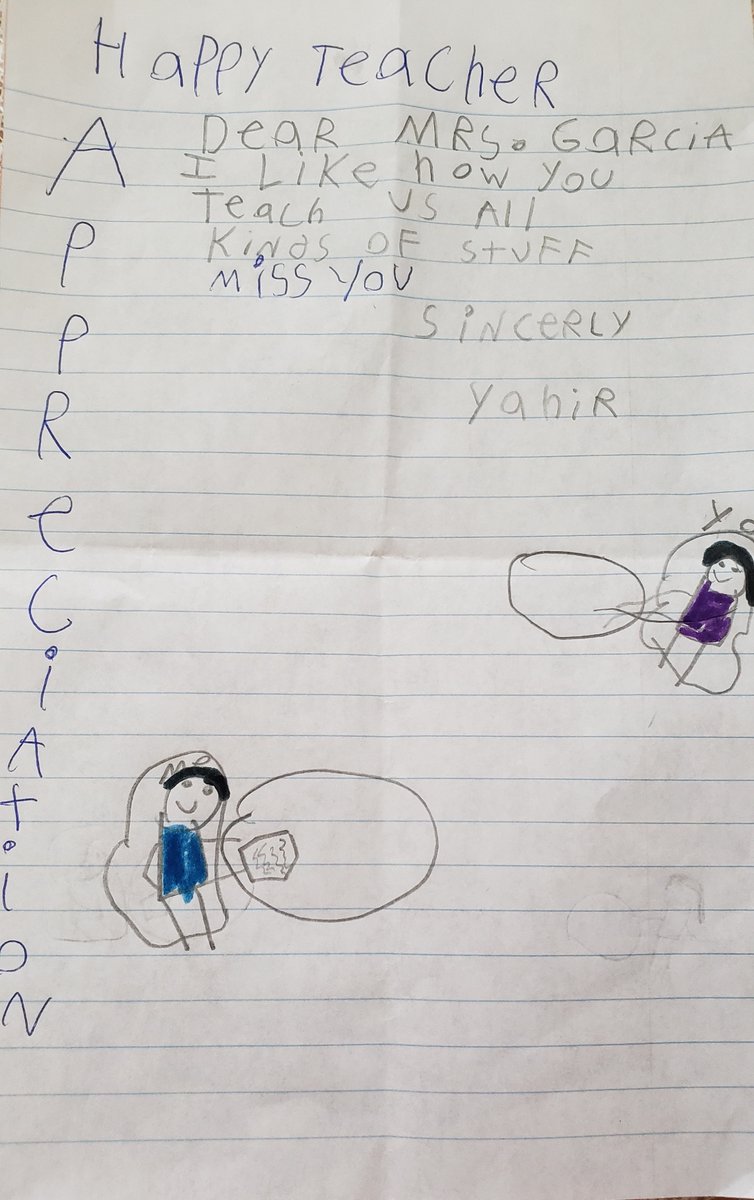 Happy Teacher
APPReCiAtiON
Dear MRS. GaRCiA
I Like how you
Teach us All
Kinds of stuff
Miss you
Sincerly
Yahir
Me